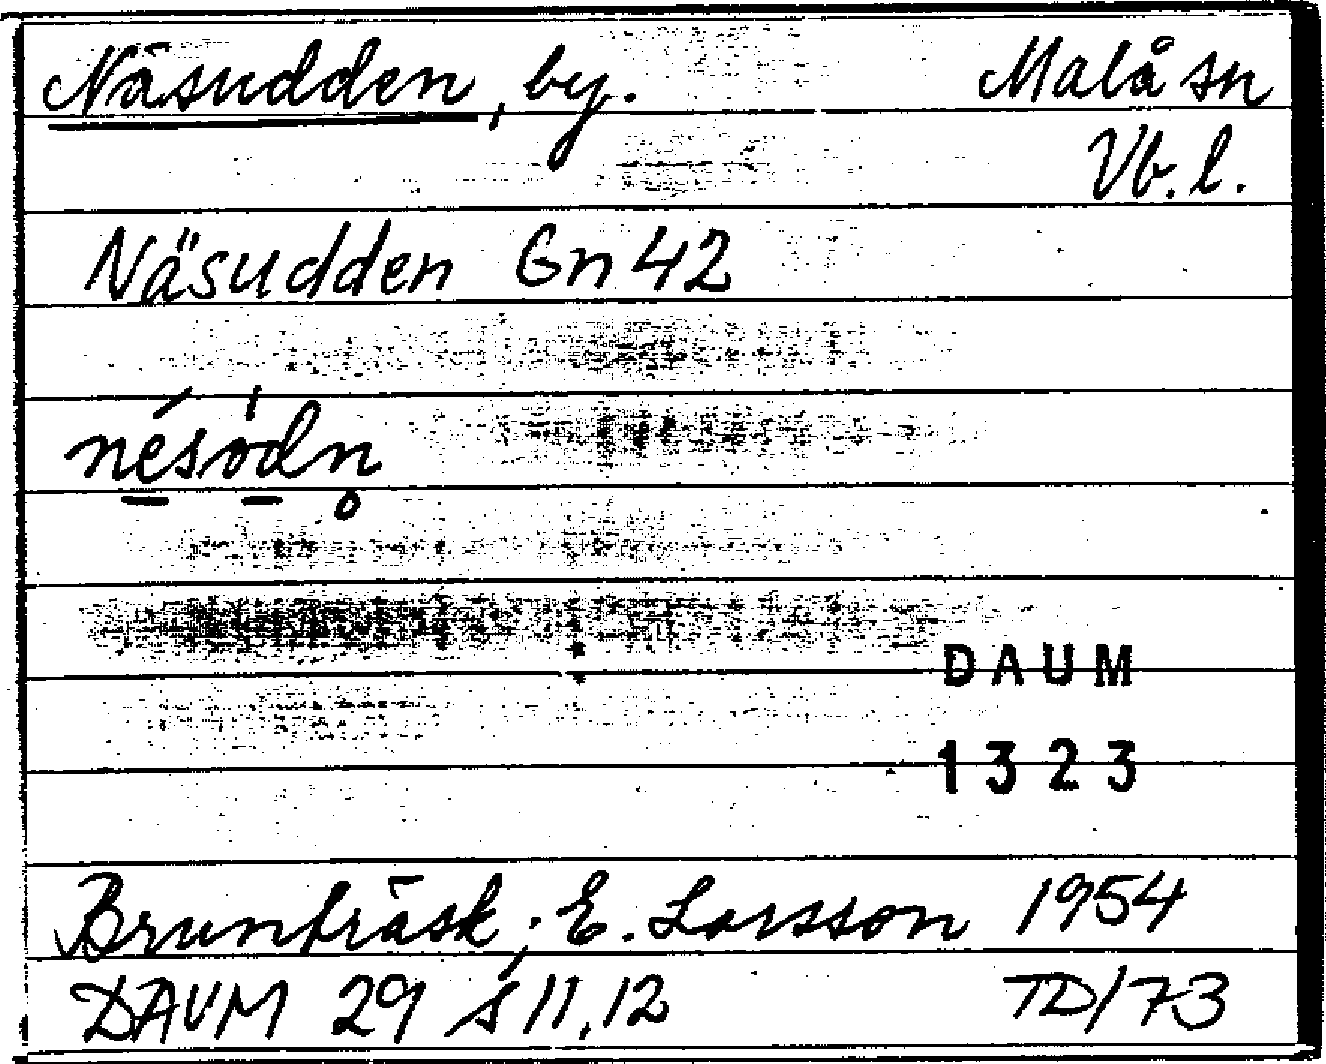 Näsudden, by. Malå sn
Vb. l.
Näsudden Gn 42
né̱só̱dn̥
DAUM
1323
Brunträsk; E. Larsson 1954
DAUM 29 s 11, 12 TD/73